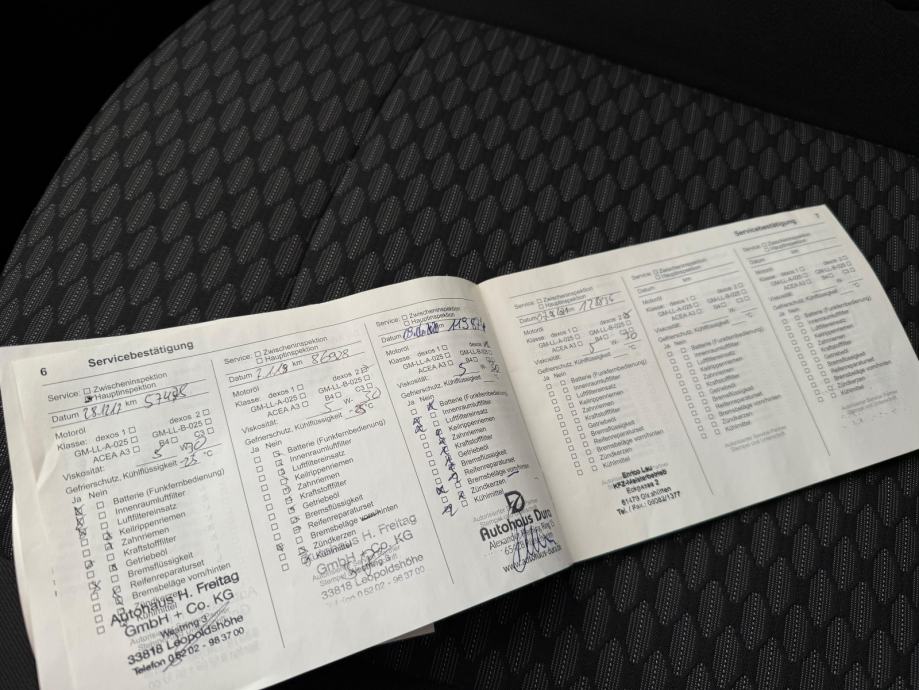 6 Servicebestätigung
Service: Zwischeninspektion
Hauptinspektion
Datum 28.12.12 km 57498
Motoröl
Klasse: dexos 1 dexos 2
GM-LL-A-025 GM-LL-B-025
ACEA A3 B4 C3
Viskosität: 5 W- 30
Gefrierschutz, Kühlflüssigkeit -25 °C
Ja Nein
Batterie (Funkfernbedienung)
Innenraumluftfilter
Luftfiltereinsatz
Keilrippenriemen
Zahnriemen
Kraftstofffilter
Getriebeöl
Bremsflüssigkeit
Reifenreparaturset
Bremsbeläge vorn/hinten
Zündkerzen
Kühlmittel
Autohaus H. Freitag
GmbH + Co. KG
Westring 3
33818 Leopoldshöhe
Telefon 0 52 02 - 98 37 00
Service: Zwischeninspektion
Hauptinspektion
Datum km
Motoröl
Klasse: dexos 1 dexos 2
GM-LL-A-025 GM-LL-B-025
ACEA A3 B4 C3
Viskosität: 5 W- 30
Gefrierschutz, Kühlflüssigkeit -25 °C
Ja Nein
Batterie (Funkfernbedienung)
Innenraumluftfilter
Luftfiltereinsatz
Keilrippenriemen
Zahnriemen
Kraftstofffilter
Getriebeöl
Bremsflüssigkeit
Reifenreparaturset
Bremsbeläge vorn/hinten
Zündkerzen
Kühlmittel
Autohaus H. Freitag
GmbH + Co. KG
Westring 3
33818 Leopoldshöhe
Telefon 0 52 02 - 98 37 00
Service: Zwischeninspektion
Hauptinspektion
Datum km
Motoröl
Klasse: dexos 1 dexos 2
GM-LL-A-025 GM-LL-B-025
ACEA A3 B4 C3
Viskosität: 5 W- 30
Gefrierschutz, Kühlflüssigkeit °C
Ja Nein
Batterie (Funkfernbedienung)
Innenraumluftfilter
Luftfiltereinsatz
Keilrippenriemen
Zahnriemen
Kraftstofffilter
Getriebeöl
Bremsflüssigkeit
Reifenreparaturset
Bremsbeläge vorn/hinten
Zündkerzen
Kühlmittel
D
Autohaus Dura
www.autohaus-dura.de
Servicebestätigung 7
Service: Zwischeninspektion
Hauptinspektion
Datum km
Motoröl
Klasse: dexos 1 dexos 2
GM-LL-A-025 GM-LL-B-025
ACEA A3 B4 C3
Viskosität: 5 W- 30
Gefrierschutz, Kühlflüssigkeit °C
Ja Nein
Batterie (Funkfernbedienung)
Innenraumluftfilter
Luftfiltereinsatz
Keilrippenriemen
Zahnriemen
Kraftstofffilter
Getriebeöl
Bremsflüssigkeit
Reifenreparaturset
Bremsbeläge vorn/hinten
Zündkerzen
Kühlmittel
Enrico Lau
KFZ-Meisterbetrieb
61479 Glashütten
Tel. / Fax.: 06082/1377
Service: Zwischeninspektion
Hauptinspektion
Datum km
Motoröl
Klasse: dexos 1 dexos 2
GM-LL-A-025 GM-LL-B-025
ACEA A3 B4 C3
Viskosität: W-
Gefrierschutz, Kühlflüssigkeit °C
Ja Nein
Batterie (Funkfernbedienung)
Innenraumluftfilter
Luftfiltereinsatz
Keilrippenriemen
Zahnriemen
Kraftstofffilter
Getriebeöl
Bremsflüssigkeit
Reifenreparaturset
Bremsbeläge vorn/hinten
Zündkerzen
Kühlmittel
Autorisierter Service Partner
Stempel und Unterschrift
Service: Zwischeninspektion
Hauptinspektion
Datum km
Motoröl
Klasse: dexos 1 dexos 2
GM-LL-A-025 GM-LL-B-025
ACEA A3 B4 C3
Viskosität: W-
Gefrierschutz, Kühlflüssigkeit °C
Ja Nein
Batterie (Funkfernbedienung)
Innenraumluftfilter
Luftfiltereinsatz
Keilrippenriemen
Zahnriemen
Kraftstofffilter
Getriebeöl
Bremsflüssigkeit
Reifenreparaturset
Bremsbeläge vorn/hinten
Zündkerzen
Kühlmittel
Autorisierter Service Partner
Stempel und Unterschrift